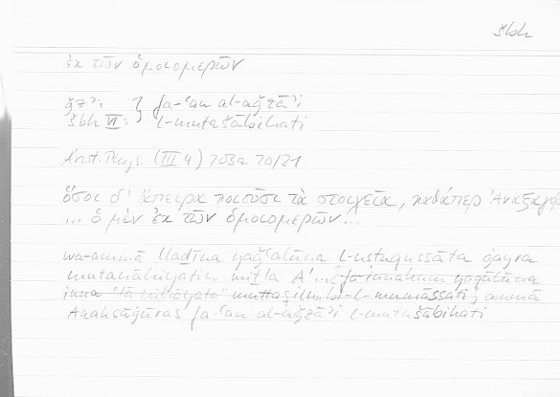 šbh
ἐκ τῶν ὁμοιομερῶν
ǧzʾ:
šbh VI: } fa-ʿan al-aǧzāʾi l-mutašābihati
Arist. Phys. (III 4) 203a 20/21
ὅσοι δ' ἄπειρα ποιοῦσι τὰ στοιχεῖα, καθάπερ Ἀναξαγόρ
... ὁ μὲν ἐκ τῶν ὁμοιομερῶν ...
wa-ammā lladīna yaǧʿalūna l-ustuqussāta ġayra
mutanāhiyatin mitla A' ... fa-innahum yaqūlūna
inna muttaṣilun bi-l-mumāssati; ammā
Anaksāġūras fa-ʿan al-aǧzāʾi l-mutašābihati